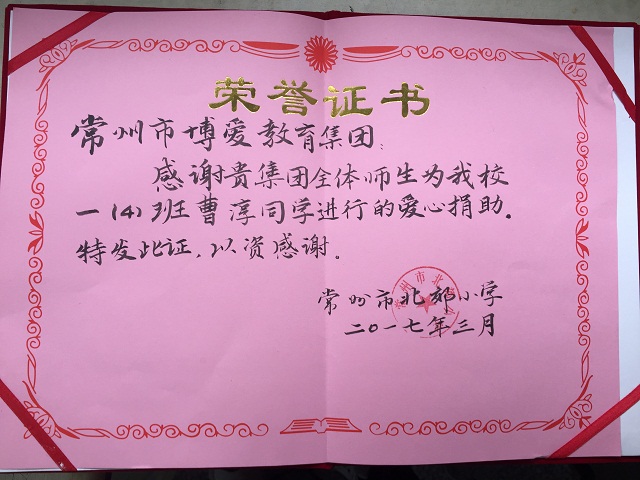 荣誉证书
常州市博爱教育集团：
感谢贵集团全体师生为我校
一(4)班曹淳同学进行的爱心捐助。
特发此证，以资感谢。
常州市北郊小学
二〇一七年三月